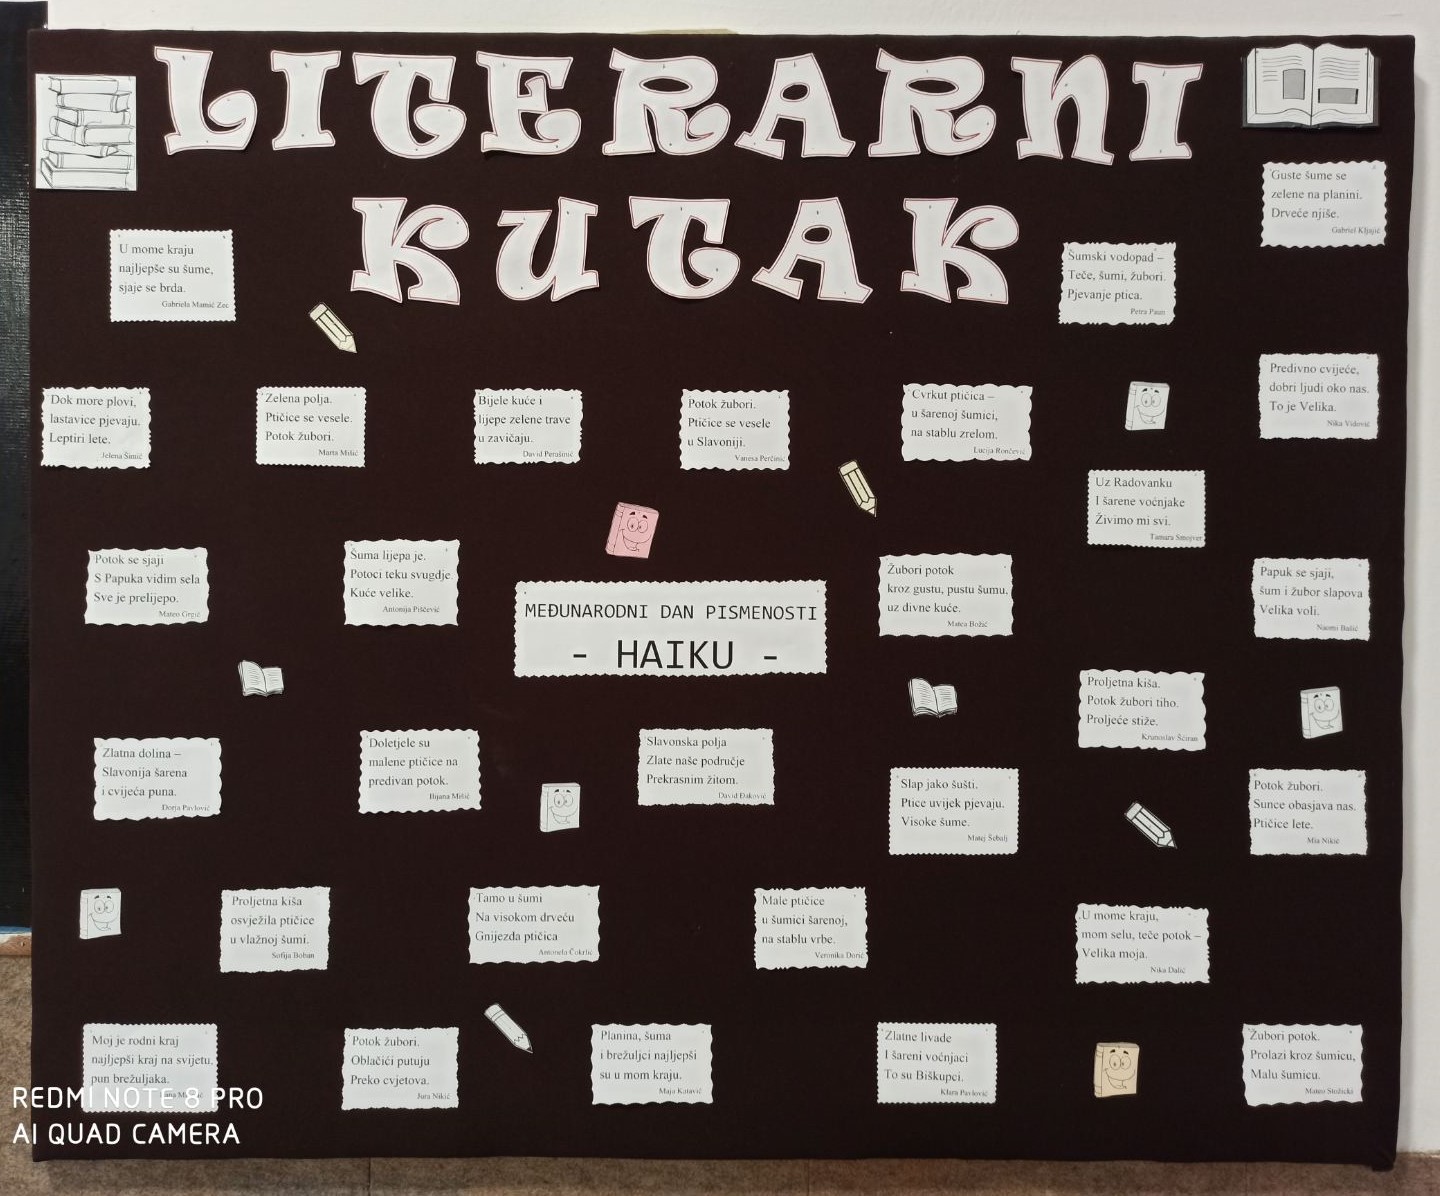 LITERARNI
KUTAK
U mome kraju
najljepše su šume,
sjaje se brda.
Gabriela Mamić Zec
Guste šume se
zelene na planini.
Drveće njiše.
Gabriel Kljajić
Šumski vodopad –
Teče, šumi, žubori.
Pjevanje ptica.
Petra Paun
Dok more plovi,
lastavice pjevaju.
Leptiri lete.
Jelena Šimić
Zelena polja.
Ptičice se vesele.
Potok žubori.
Marta Milić
Bijele kuće i
lijepe zelene trave
u zavičaju.
David Perašinić
Potok žubori.
Ptičice se vesele
u Slavoniji.
Vanesa Perčinić
Cvrkut ptičica –
u šarenoj šumici,
na stablu zrelom.
Lucija Rončević
Predivno cvijeće,
dobri ljudi oko nas.
To je Velika.
Nika Vidović
Uz Radovanku
I šarene voćnjake
Živimo mi svi.
Tamara Smojver
Potok se sjaji
S Papuka vidim sela
Sve je prelijepo.
Mateo Grgić
Šuma lijepa je.
Potoci teku svugdje.
Kuće velike.
Antonija Piščević
MEĐUNARODNI DAN PISMENOSTI
- HAIKU -
Žubori potok
kroz gustu, pustu šumu,
uz divne kuće.
Matea Božić
Papuk se sjaji,
šum i žubor slapova
Velika voli.
Naomi Bašić
Proljetna kiša.
Potok žubori tiho.
Proljeće stiže.
Krunoslav Šćiran
Zlatna dolina –
Slavonija šarena
i cvijeća puna.
Dorja Pavlović
Doletjele su
malene ptičice na
predivan potok.
Bijana Mišić
Slavonska polja
Zlate naše područje
Prekrasnim žitom.
David Đaković
Slap jako šušti.
Ptice uvijek pjevaju.
Visoke šume.
Matej Šebalj
Potok žubori.
Sunce obasjava nas.
Ptičice lete.
Mia Nikić
Proljetna kiša
osvježila ptičice
u vlažnoj šumi.
Sofija Boban
Tamo u šumi
Na visokom drveću
Gnijezda ptičica
Antonela Čokrlić
Male ptičice
u šumici šarenoj,
na stablu vrbe.
Veronika Dorić
U mome kraju,
mom selu, teče potok –
Velika moja.
Nika Dalić
Moj je rodni kraj
najljepši kraj na svijetu,
pun brežuljaka.
Potok žubori.
Oblačići putuju
Preko cvjetova.
Jura Nikić
Planina, šuma
i brežuljci najljepši
su u mom kraju.
Maja Katavić
Zlatne livade
I šareni voćnjaci
To su Biškupci.
Klara Pavlović
Žubori potok.
Prolazi kroz šumicu,
Malu šumicu.
Mateo Stožicki
REDMI NOTE 8 PRO
AI QUAD CAMERA